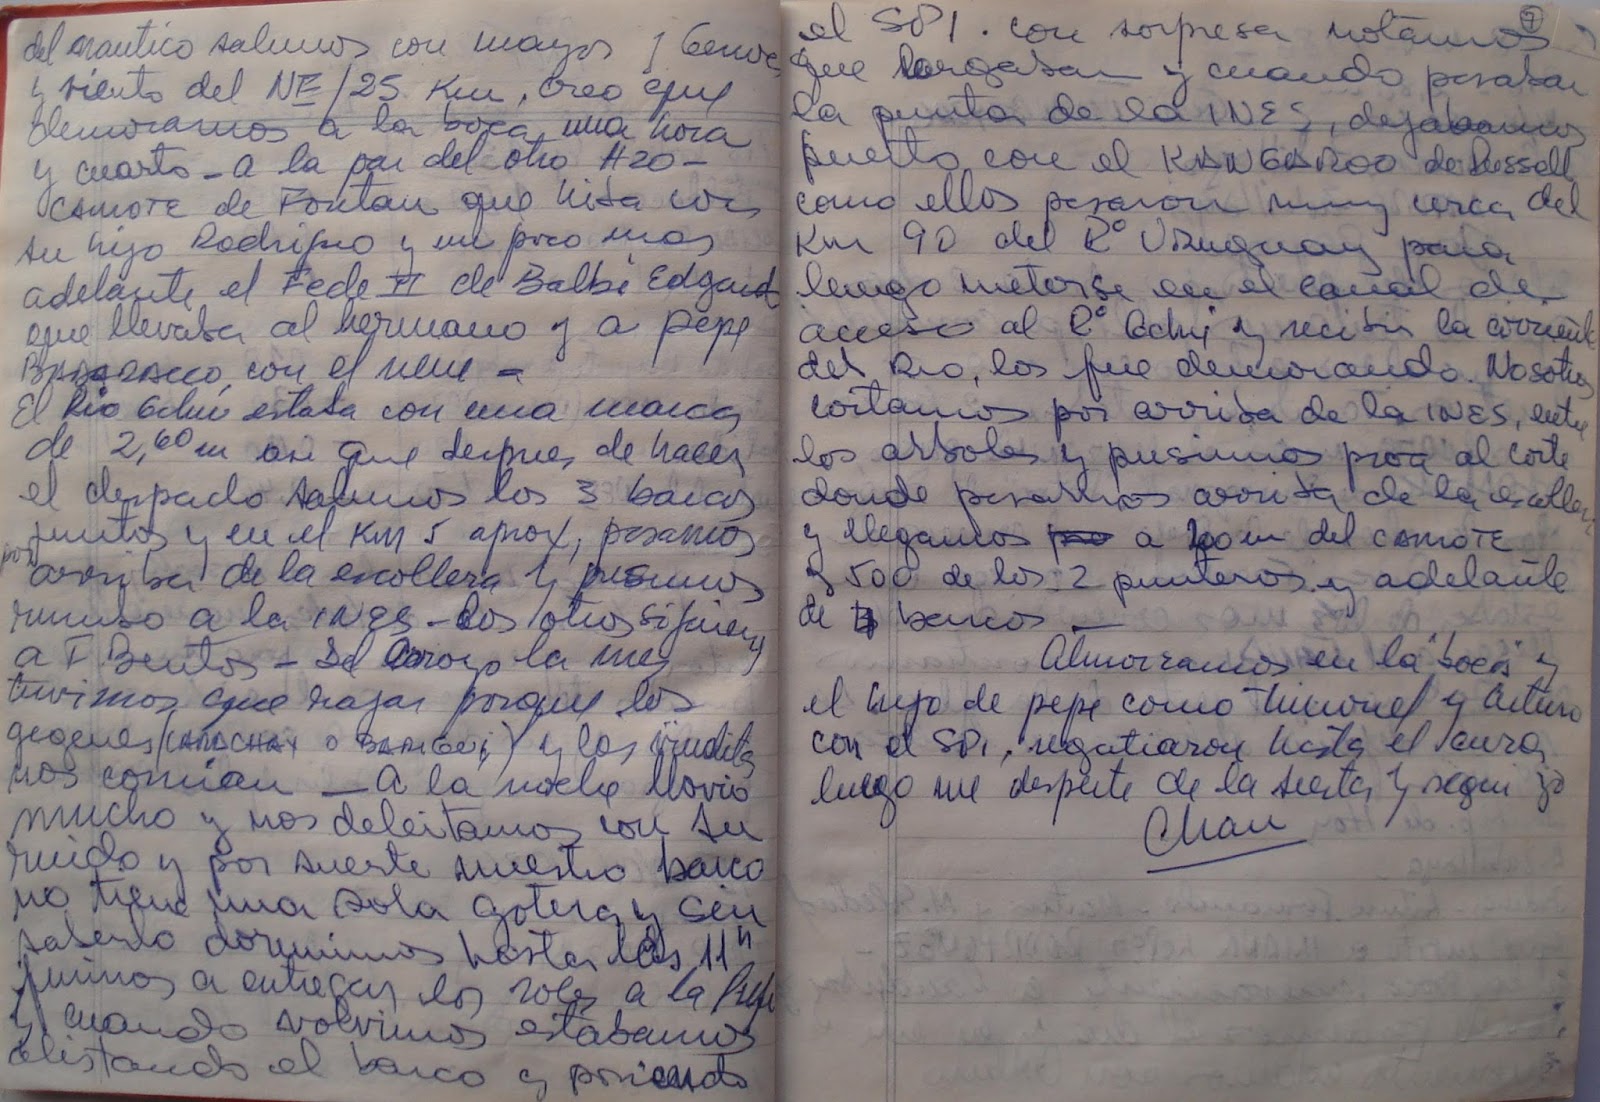 del nautico salimos con mayor y Genoa
y viento del NE/25 Km, creo que
demoramos a la boca una hora
y cuarto - a la par del otro H20 -
CAMOTE de Fontan que hiba con
su hijo Rodrigo y un poco mas
adelante el Fede II de Balbi Edgard
que llevaba al hermano y a pepe
con el nene -
El Rio Gchú estaba con una marca
de 2,60 m asi que despues de hacer
el despacho salimos los 3 barcos
juntos y en el Km 5 aprox, pasamos
por arriba de la escollera y pusimos
rumbo a la INES - Los otros siguieron
a F Bentos - Del arroyo la Ines
tuvimos que rajar porque los
gegenes ( o ) y las viuditas
nos comian - A la noche llovio
mucho y nos deleitamos con su
ruido y por suerte nuestro barco
no tiene una sola gotera y sin
saberlo dormimos hasta las 11 h
fuimos a entregar los roles a la Pref
y cuando volvimos estabamos
alistando el barco y poniendo
7
el SPI. con sorpresa notamos
que largaban y cuando pasaban
la punta de la INES, dejabamos
puerto con el KANGAROO de Russell
como ellos pasaron muy cerca del
Km 90 del Rº Uruguay para
luego meterse en el canal de
acceso al Rº Gchú y recibir la corriente
del Rio, los fue demorando. Nosotros
cortamos por arriba de la INES, entre
los arboles y pusimos proa al corte
donde pasamos arriba de la escollera
y llegamos a 200 m del CAMOTE
y 500 de los 2 punteros y adelante
de barcos -
Almorzamos en la "boca" y
el hijo de pepe como timonel y Arturo
con el SPI, regatiaron hasta el
luego me desperte de la siesta y segui yo
Chau